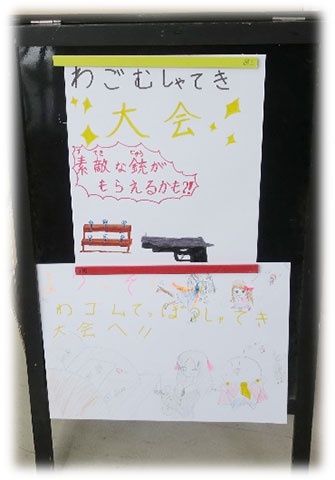 わごむしゃてき
大会
素敵な銃が
もらえるかも?!
ようこそ
わゴムてっぽうしゃてき
大会へ!!